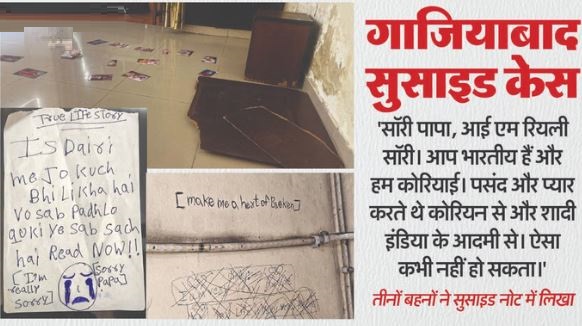 गाजियाबाद
सुसाइड केस
'सॉरी पापा, आई एम रियली
सॉरी। आप भारतीय हैं और
हम कोरियाई। पसंद और प्यार
करते थे कोरियन से और शादी
इंडिया के आदमी से। ऐसा
कभी नहीं हो सकता।'
तीनों बहनों ने सुसाइड नोट में लिखा
True Life Story
IS Dairi
me Jo kuch
Bhi Likha hai
vo sab Padhlo
quki ye sab sach
hai Read NOW!!
[I'm
really
sorry]
sorry
Papa]
[make me a hert of Broken]